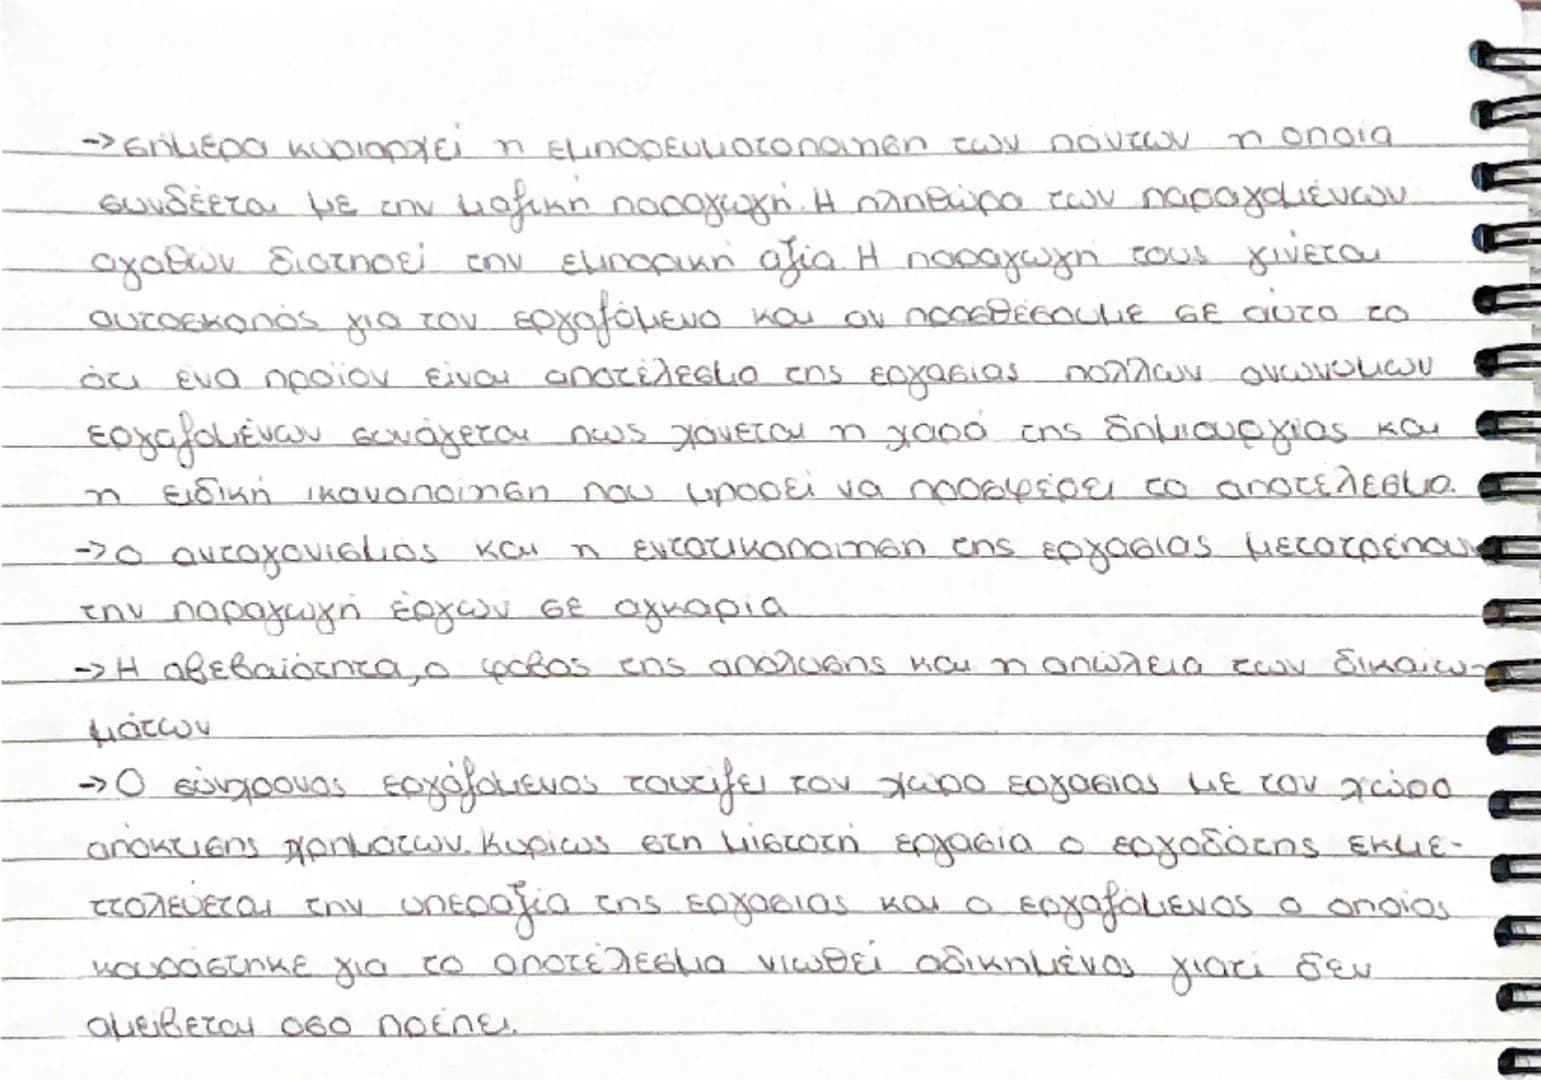 → σήμερα κυριαρχεί η εμπορευματοποίηση των πάντων η οποία
συνδέεται με την μαζική παραγωγή. Η πληθώρα των παραγομένων
αγαθών διατηρεί την εμπορική αξία. Η παραγωγή τους γίνεται
αυτοσκοπός για τον εργαζόμενο και αν προσθέσουμε σε αύτο το
ότι ένα προϊον είναι αποτέλεσμα της εργασίας πολλων ανωνυμων
εργαζομένων συνάγεται πως χάνεται η χαρά της δημιουργίας και
η ειδική ικανοποίηση που μπορεί να προσφέρει το αποτέλεσμα.
→ ο ανταγονισμός και η εντατικοποίηση της εργασίας μετατρέπουν
την παραγωγή έργων σε αγκαρία
→ Η αβεβαιότητα, ο φόβος της απόλυσης και η απώλεια των δικαιω-
μάτων
→ Ο σύγχρονος εργάζομενος ταυτίζει τον χώρο εργασίας με τον χώρο
απόκτισης χρημάτων. Κυρίως στη μιστοτή εργασία ο εργοδότης εκμε-
τττολεύεται την υπεραξία της εργασίας και ο εργαζόμενος ο οποίος
κουράστηκε για το αποτέλεσμα νιωθεί αδικημένος γιατί δεν
αμείβεται οσο πρέπει.